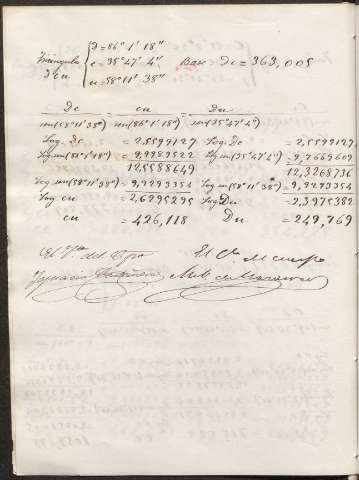 d = 86° 1' 18"
Triangulo c = 35° 47' 4" Base = Dc = 363,005
dcu u = 58° 11' 38"
Dc = cu = Du
sin(58°11'38") sin(86°1'18") sin(35°47'4")
Log. dc = 2,5599127 Log. dc = 2,5599127
Log sin(86°1'18") = 9,9989522 Log sin(35°47'4") = 9,7669609
12,5588649 12,3268736
Log sin(58°11'38") = 9,9293354 Log sin(58°11'38") = 9,9293354
Log cu = 2,6295295 Log Du = 2,3975382
cu = 426,118 Du = 249,769
El del El
Ygnacio